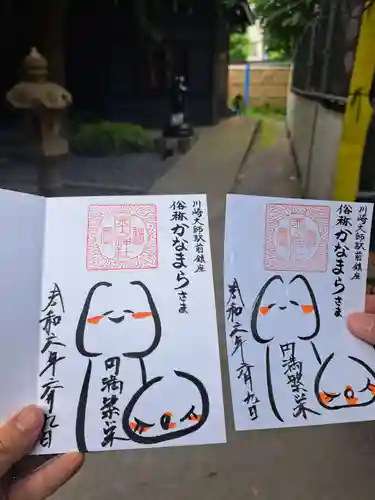 川崎大師駅前鎮座
俗称かなまらさま
円満繁栄
令和六年六月九日
川崎大師駅前鎮座
俗称かなまらさま
円満繁栄
令和六年六月九日